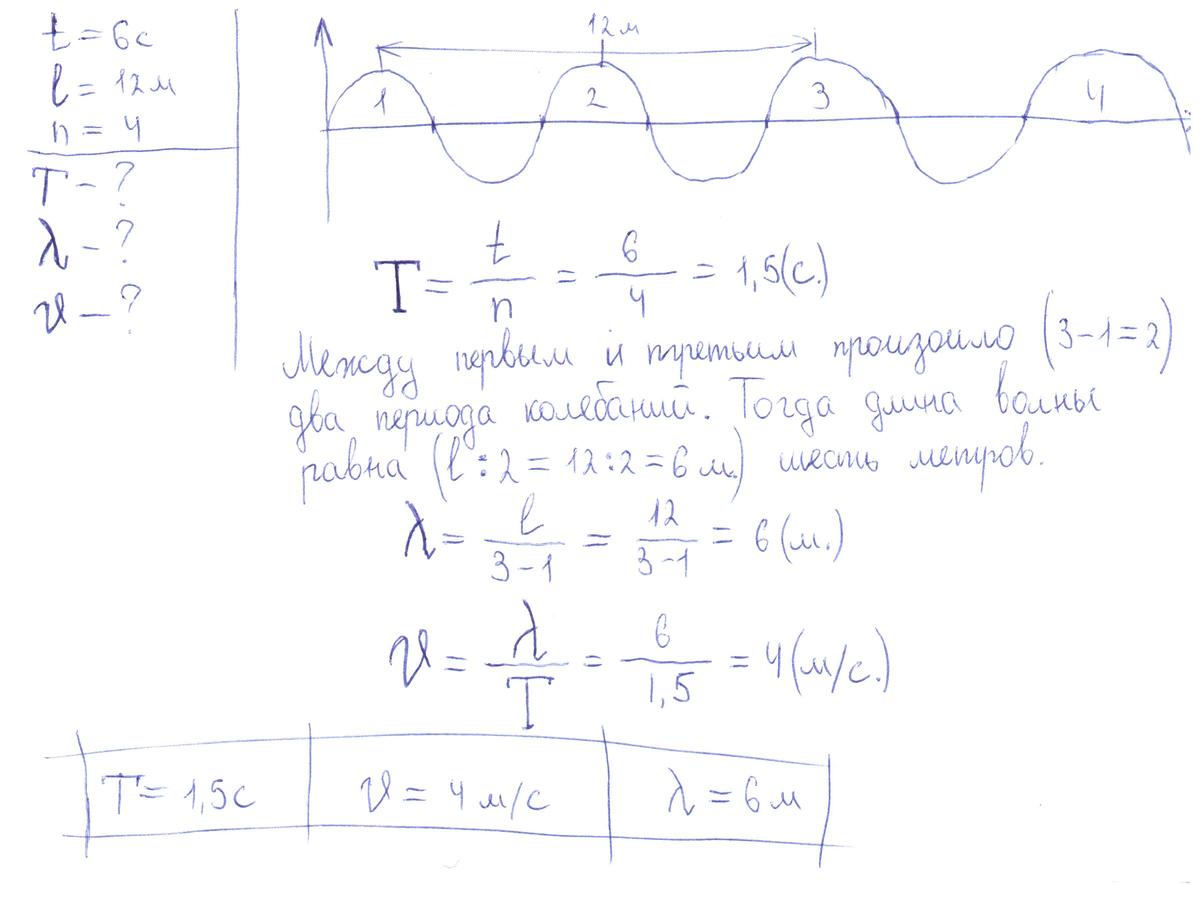 t = 6с
l = 12м
n = 4
T – ?
λ – ?
v – ?
12м
1 2 3 4
T = t/n = 6/4 = 1,5(с.)
Между первым и третьим произошло (3-1=2)
два периода колебаний. Тогда длина волны
равна (l:2=12:2=6 м.) шесть метров.
λ = l/(3-1) = 12/(3-1) = 6 (м.)
v = λ/T = 6/1,5 = 4(м/с.)
T = 1,5с v = 4 м/с λ = 6 м